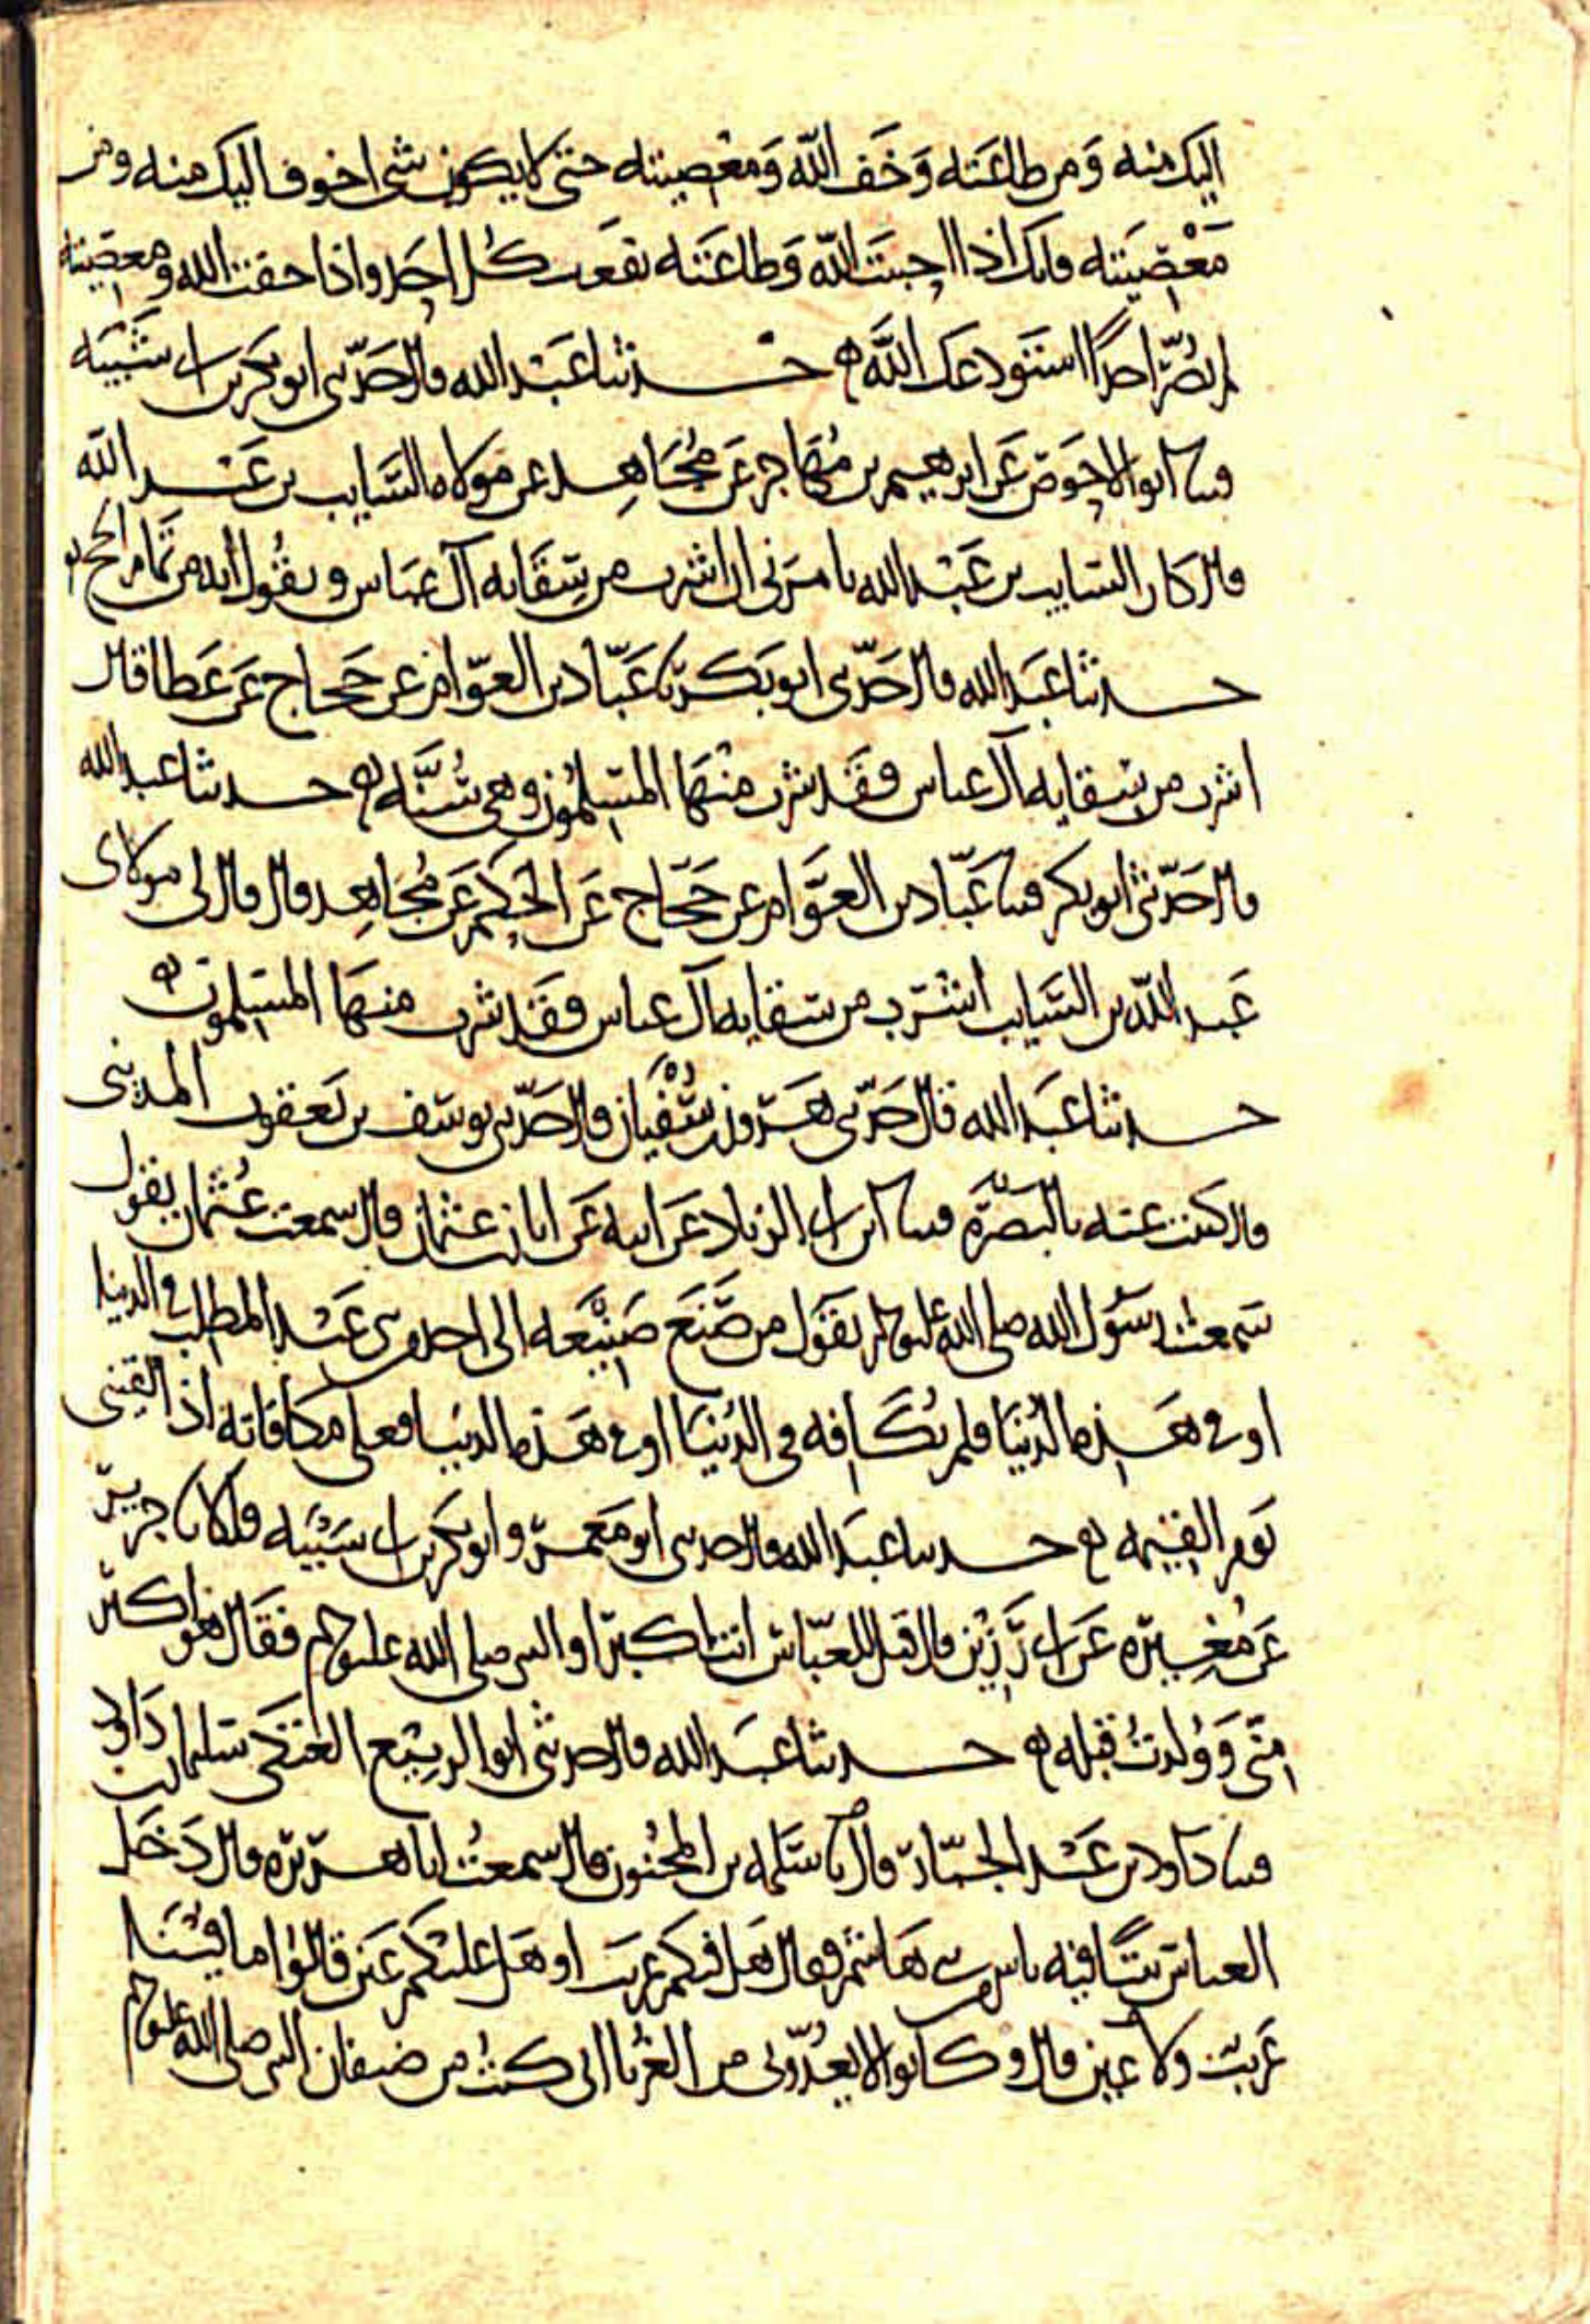 اليك منه وَمن طاعَته وَخَف الله وَمعْصيته حتى لا يكون شى اخوف اليك منه ومن
مَعْصيَته فانك اذا احببتَ الله وَطاعَتَه نفعت كُل احَد واذا خفت الله ومعصيته
لم تضُرّ احدًا استودعك اللهَ ه حدثنا عَبْد الله قال حَدّثنى ابو بكر بن ابى شَيْبَه
قثنا ابو الاحوَص عَن ابرهيم بن مُهَاجر عَن مُجَاهِد عن مولاه السَّايب بن عَبْد الله
قال كان السايب بن عَبْد الله يامرنى ان اشرب من سِقَايه آل عبَاس ويقُول انه من تمام الحج ه
حدثنا عَبد الله قال حَدّثنى ابو بَكر نا عَبّاد بن العوّام عن حَجاج عَن عَطا قال
اشرب من سقايه آل عباس فقَد شرب منْهَا المسلمُون وهى سُنَّه ه حدثنا عبد الله
قال حَدّثنى ابو بكر قثنا عَبّاد بن العوَّام عن حَجّاج عَن الحَكَم عَن مُجاهِد قال قال لى مولاى
عَبد الله بن السَّايب اشرَب من سقايه آل عباس فقَد شرب منهَا المسلمون ه
حدثنا عَبد الله قال حَدّثنى هَرون بن سُفْيان قال حَدّثنى يوسف بن يَعقوب المدينى
قال كتبت عنه بالبَصرَه قثنا ابن ابى الزناد عَن ابيه عَن ابان بن عثمان قال سمعت عُثمان يقول
سَمعت رسُول الله صلى الله عليه وسلم يقَول من صَنَعَ صَنيْعَه الى احد من بنى عَبْد المطلب فى الدنيا
او فى هَذه الدُنيَا فلم يُكَافه فى الدُنيَا او فى هَذه الدنيا فعلى مكافاته اذا لقينى
يَوم القيمه ه حدثنا عبَد الله قال حدثنى ابو مَعمَر وابو بكر بن ابى شَيْبَه قالا نا جرير
عَن مُغيرَه عَن ابى رَزِيْن قال قيل للعبّاس انت اكبر او النبى صلى الله عليه وسلم فقَال هو اكبر
منّى وَوُلدتُ قبله ه حدثنا عبَد الله قال حدثنى ابو الربيْع العَتَكى سليمان بن دَاود
قثنا داود بن عَبْد الجبّار قال نا سَلمه بن المجنون قال سمعتُ ابا هرَيرَه قال دَخَل
العباس بيتًا فيه ناس من بنى هَاشم فقال هَل فيكم غريب او هَل عليْكم عَين قالُوا ما فيْنَا
غَريب ولا عين قال وكانوا لا يعُدّونى من الغربا انى كنتُ من ضيفان النبى صلى الله عليه وسلم